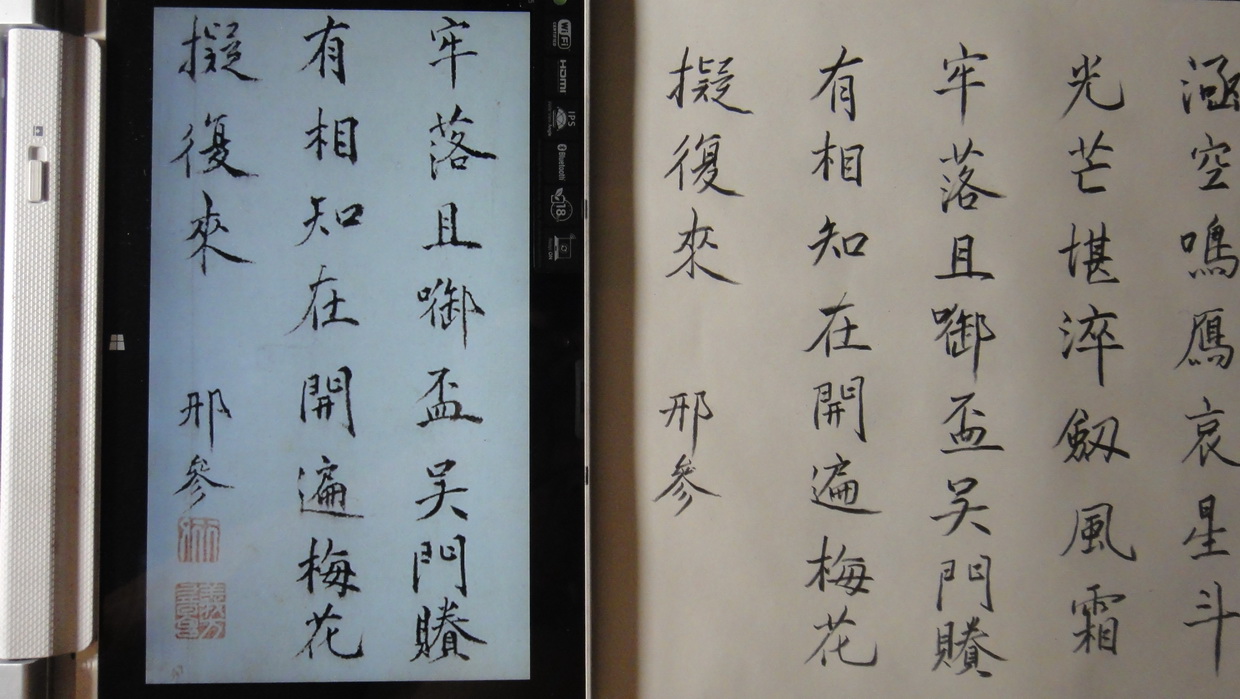 涵空鳴鴈哀星斗
光芒堪淬劒風霜
牢落且啣盃吳門賸
有相知在開遍梅花
擬復來 邢參
Wi Fi
CERTIFIED
HDMI
IPS
Bluetooth
18
牢落且啣盃吳門賸
有相知在開遍梅花
擬復來 邢參